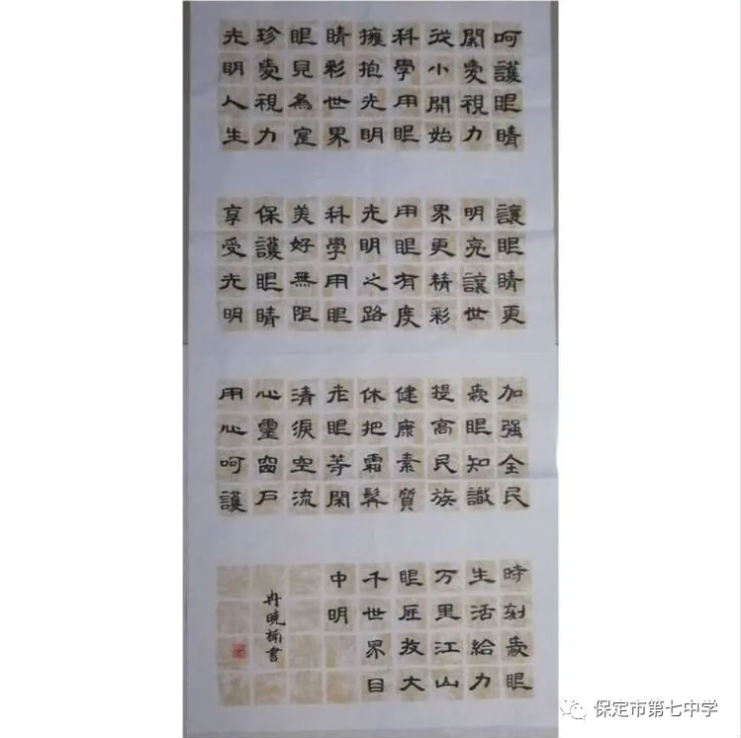 呵護眼睛
關愛視力
從小開始
科學用眼
擁抱光明
睛彩世界
眼見為寔
珍愛視力
光明人生
讓眼睛更
明亮讓世
界更精彩
用眼有度
光明之路
科學用眼
美好無限
保護眼睛
享受光明
加强全民
愛眼知識
提高民族
健康素質
休把霜
老眼等閑
清淚空流
心靈窗户
用心呵護
時刻愛眼
生活給力
万里江山
眼底放大
千世界目
中明
冉曉楠書
保定市第七中学